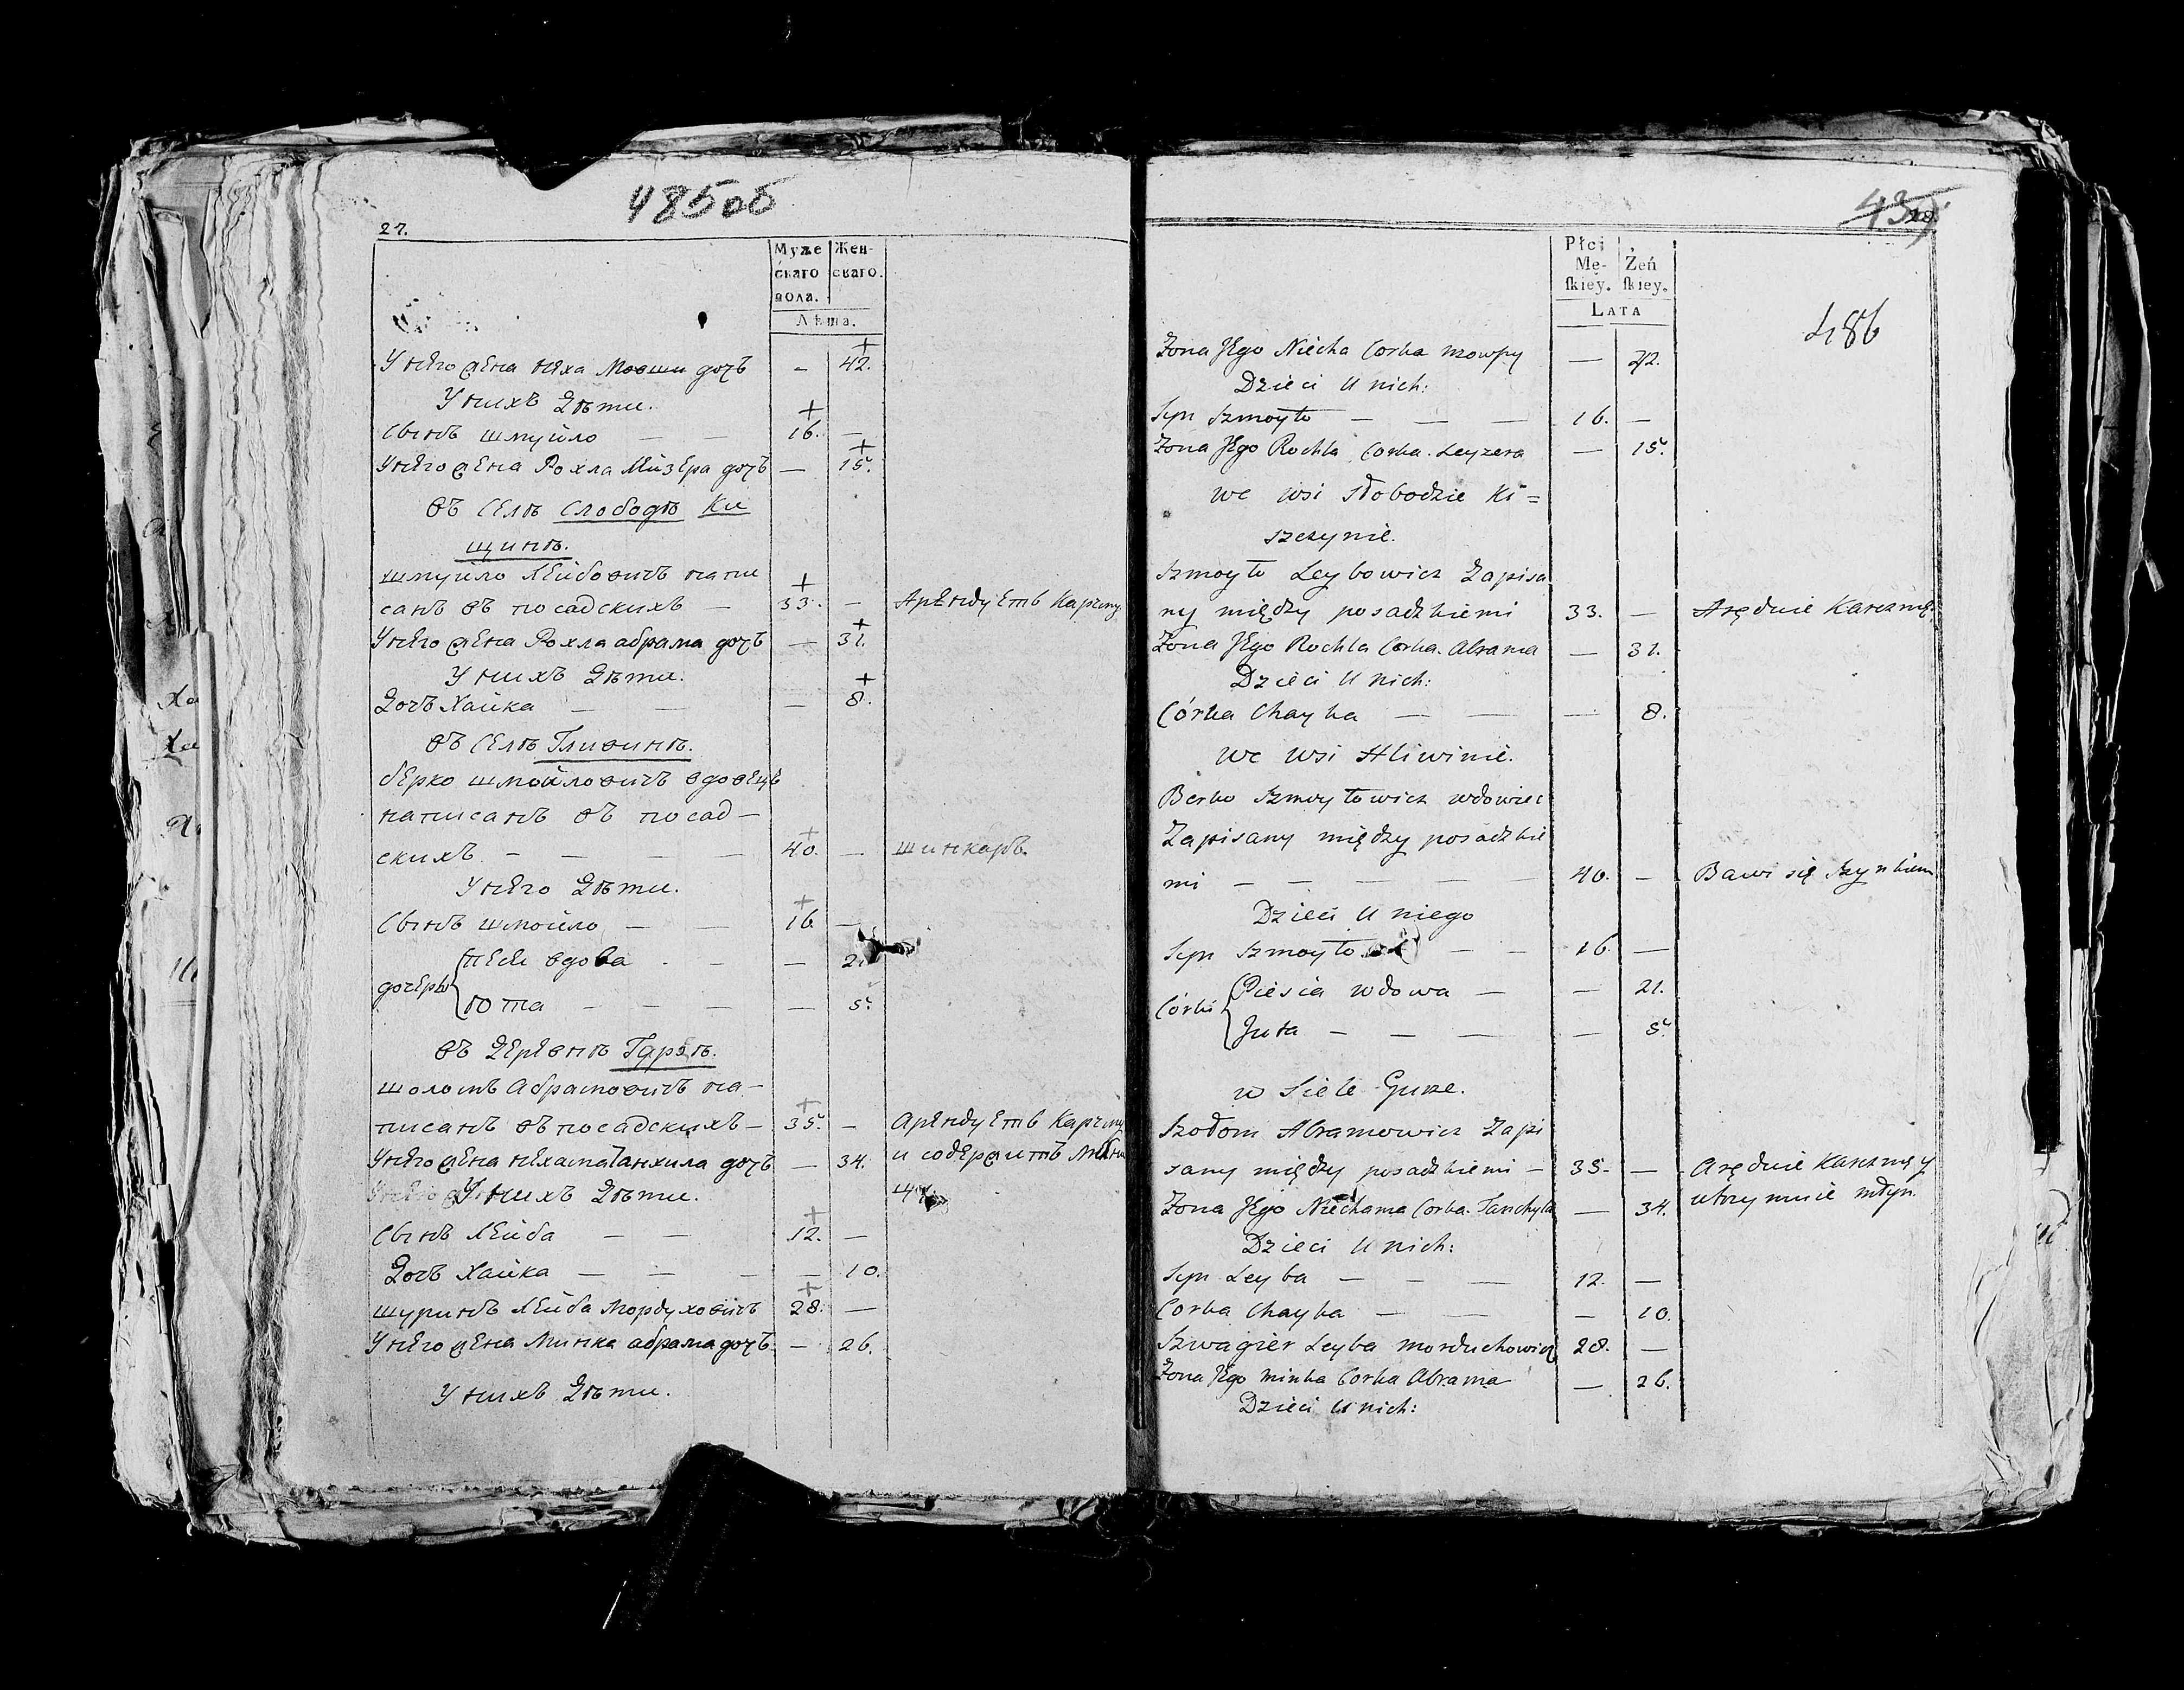 485об
27.
Муже
скаго
пола.
Жен-
скаго.
Лѣта.
У него жена неха Мовши дочь — 42.
У нихъ Дѣти.
Сынъ шмуйло — — 16. —
У него жена Рохла Лейзера дочь — 15.
въ Селѣ Слободѣ Ки
щинѣ.
шмуйло Лейбовичъ напи
санъ въ посадскихъ — 33. — Арендуетъ Карчму.
У него жена Рохла абрама дочь — 31.
У нихъ Дѣти.
Дочь Хайка — — — 8.
въ Селѣ Гливинѣ.
берко шмойловичъ вдовецъ
написанъ въ посад—
скихъ — — — — 40. — шинкаръ.
У него Дѣти.
Сынъ шмойло — — 16. —
дочеры
песе вдова — — 21
юта — — — — 5.
въ Деревнѣ Гурѣ.
шоломъ Абрамовичъ на—
писанъ въ посадскихъ — 35. — Арендуетъ Карчму
У него жена нехама Танхила дочь — 34. и содержитъ
У нихъ Дѣти.
Сынъ Лейба — — 12. —
Дочь Хайка — — — — 10.
шуринъ Лейба Мордуховичъ 28. —
У него жена Минка абрама дочь. — 26.
У нихъ Дѣти.
28.
Płci
Mę-
ſkiey.
Żeń
ſkiey.
LATA
486
Zona Jego Niecha Corka mowszy — 42.
Dzieci U nich:
Syn Szmoyło — — — 16. —
Zona Jego Rochla Corka Leyzera — 15.
we wsi słobodzie Ki=
szczynie.
Szmoyło Leybowicz Zapisa
ny między posadzkiemi 33. — Aręduie Karczmę.
Zona Jego Rochla Corka Abrama — 31.
Dzieci U nich:
Córka Chayka — — — 8.
we wsi Hliwinie.
Berko Szmoyłowicz wdowiec
Zapisany między posadzkie
mi — — — — — 40. — Bawi się Szynkiem
Dzieci U niego
Syn Szmoyło — — 16. —
Córki
Piesia wdowa — — 21.
Juta — — — — 5.
w Siele Gurze.
Szołom Abramowicz Zapi
sany między posadzkiemi — 35. — Aręduie Karczmę y
Zona Jego Niechama Corka Tanchyla — 34. utrzymuie młyn.
Dzieci U nich:
Syn Leyba — — — 12. —
Corka Chayka — — — 10.
Szwagier Leyba morduchowicz 28. —
Zona Jego minka Corka Abrama — 26.
Dzieci U nich: